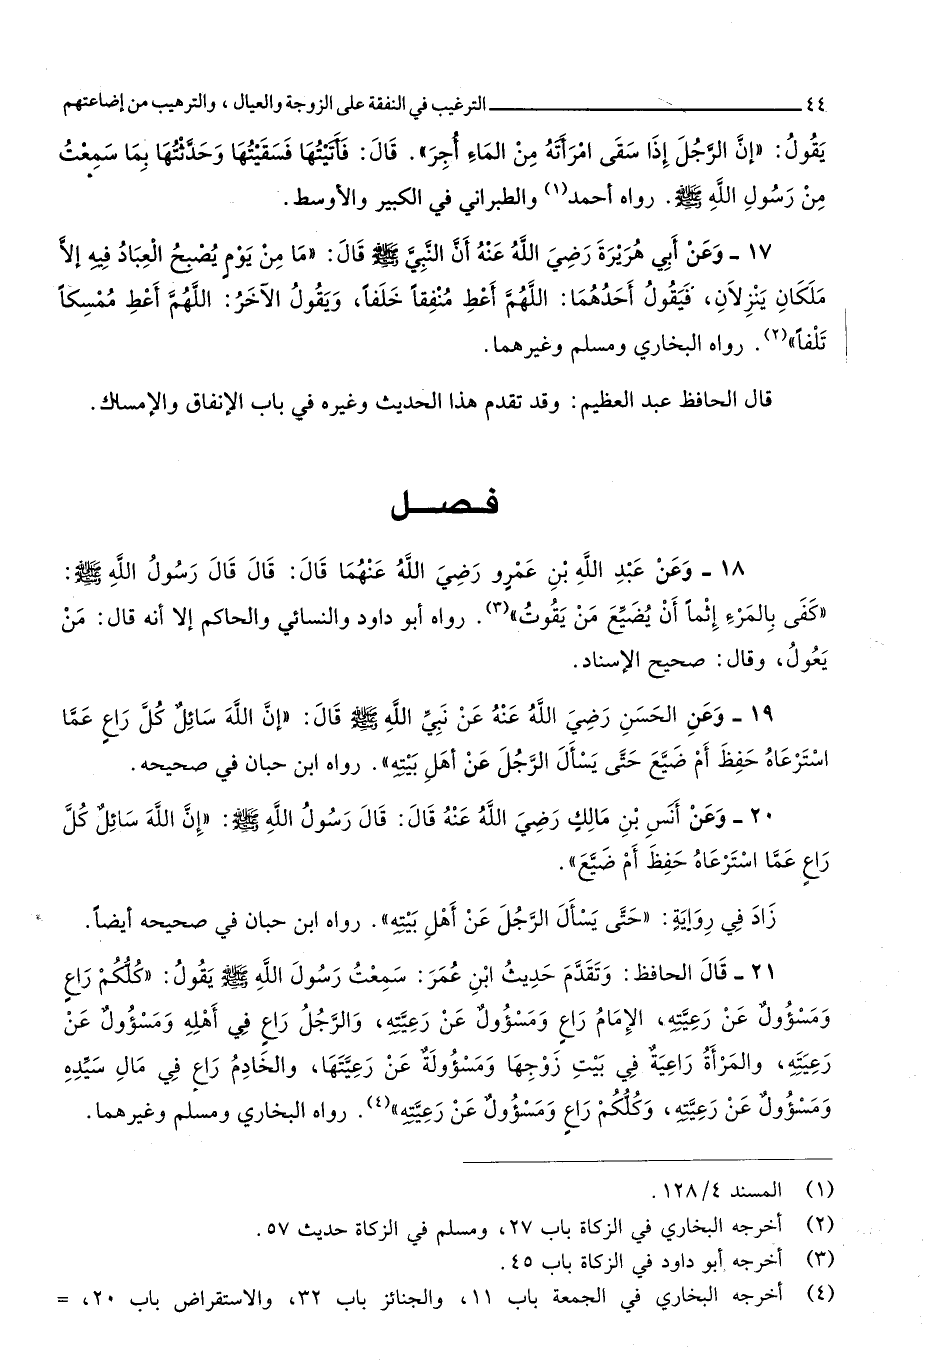 ٤٤ ــــــ الترغيب في النفقة على الزوجة والعيال ، والترهيب من إضاعتهم
يَقُولُ: «إنَّ الرَّجُلَ إذَا سَقَى امْرَأَتَهُ مِنْ المَاءِ أُجِرَ». قَالَ: فَأَتَيْتُهَا فَسَقَيْتُهَا وَحَدَّثْتُهَا بِمَا سَمِعْتُ
مِنْ رَسُولِ اللَّهِ ﷺ. رواه أحمد(١) والطبراني في الكبير والأوسط.
١٧ ـ وَعَنْ أَبِي هُرَيْرَةَ رَضِيَ اللَّهُ عَنْهُ أَنَّ النَّبِيَّ ﷺ قَالَ: «مَا مِنْ يَوْمٍ يُصْبِحُ الْعِبَادُ فِيهِ إلاَّ
مَلَكَانِ يَنْزِلاَنِ، فَيَقُولُ أَحَدُهُمَا: اللَّهُمَّ أَعْطِ مُنْفِقاً خَلَفاً، وَيَقُولُ الآخَرُ: اللَّهُمَّ أَعْطِ مُمْسِكاً
تَلْفاً»(٢). رواه البخاري ومسلم وغيرهما.
قال الحافظ عبد العظيم: وقد تقدم هذا الحديث وغيره في باب الإنفاق والإمساك.
فـصــل
١٨ ـ وَعَنْ عَبْدِ اللَّهِ بْنِ عَمْرٍو رَضِيَ اللَّهُ عَنْهُمَا قَالَ: قَالَ قَالَ رَسُولُ اللَّهِ ﷺ:
«كَفَى بِالمَرْءِ إِثْماً أَنْ يُضَيِّعَ مَنْ يَقُوتُ»(٣). رواه أبو داود والنسائي والحاكم إلا أنه قال: مَنْ
يَعُولُ، وقال: صحيح الإسناد.
١٩ ـ وَعَنِ الحَسَنِ رَضِيَ اللَّهُ عَنْهُ عَنْ نَبِيِّ اللَّهِ ﷺ قَالَ: «إنَّ اللَّهَ سَائِلٌ كُلَّ رَاعٍ عَمَّا
اسْتَرْعَاهُ حَفِظَ أَمْ ضَيَّعَ حَتَّى يَسْأَلَ الرَّجُلَ عَنْ أهَلِ بَيْتِهِ». رواه ابن حبان في صحيحه.
٢٠ ـ وَعَنْ أَنَسِ بْنِ مَالِكٍ رَضِيَ اللَّهُ عَنْهُ قَالَ: قَالَ رَسُولُ اللَّهِ ﷺ: «إنَّ اللَّهَ سَائِلٌ كُلَّ
رَاعٍ عَمَّا اسْتَرْعَاهُ حَفِظَ أَمْ ضَيَّعَ».
زَادَ فِي رِوَايَةٍ: «حَتَّى يَسْأَلَ الرَّجُلَ عَنْ أَهْلِ بَيْتِهِ». رواه ابن حبان في صحيحه أيضاً.
٢١ ـ قَالَ الحافظ: وَتَقَدَّمَ حَدِيثُ ابْنِ عُمَرَ: سَمِعْتُ رَسُولَ اللَّهِ ﷺ يَقُولُ: «كُلُّكُمْ رَاعٍ
وَمَسْؤُولٌ عَنْ رَعِيَّتِهِ، الإمَامُ رَاعٍ وَمَسْؤُولٌ عَنْ رَعِيَّتِهِ، وَالرَّجُلُ رَاعٍ فِي أَهْلِهِ وَمَسْؤُولٌ عَنْ
رَعِيَتِهِ، والمَرْأَةُ رَاعِيَةٌ فِي بَيْتِ زَوْجِهَا وَمَسْؤُولَةٌ عَنْ رَعِيَّتَهَا، والخَادِمُ رَاعٍ فِي مَالِ سَيِّدِهِ
وَمَسْؤُولٌ عَنْ رَعِيَّتِهِ، وَكُلُّكُمْ رَاعٍ وَمَسْؤُولٌ عَنْ رَعِيَّتِهِ»(٤). رواه البخاري ومسلم وغيرهما.
(١) المسند ١٢٨/٤.
(٢) أخرجه البخاري في الزكاة باب ٢٧، ومسلم في الزكاة حديث ٥٧.
(٣) أخرجه أبو داود في الزكاة باب ٤٥.
(٤) أخرجه البخاري في الجمعة باب ١١، والجنائز باب ٣٢، والاستقراض باب ٢٠، =